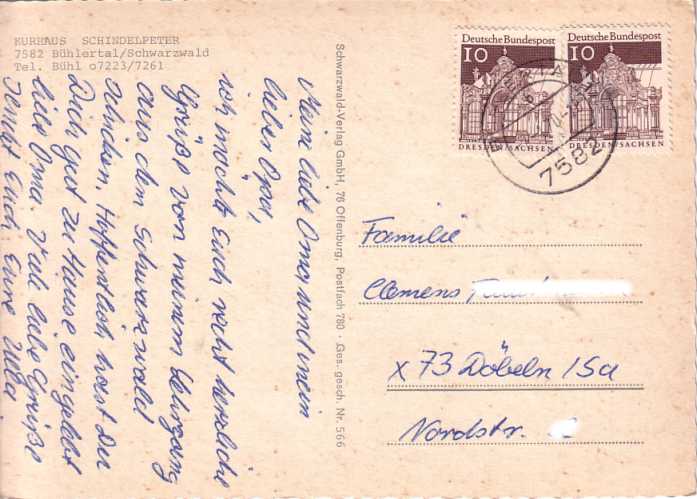 KURHAUS SCHINDELPETER
7582 Bühlertal/Schwarzwald
Tel. Bühl o7223/7261
Meine liebe Oma und mein
lieber Opa,
ich möchte Euch recht herzliche
Grüße von meinem Lehrgang
aus dem Schwarzwald
schicken. Hoffentlich hast Du
Dich gut zu Hause eingelebt
liebe Oma. Viele liebe Grüße
sendet Euch Eure
Schwarzwald-Verlag GmbH, 76 Offenburg, Postfach 780 · Ges. gesch. Nr. 566
Deutsche Bundespost
10
DRESDEN/SACHSEN
Deutsche Bundespost
10
DRESDEN/SACHSEN
7582
Familie
Clemens
x 73 Döbeln / Sa
Nordstr.